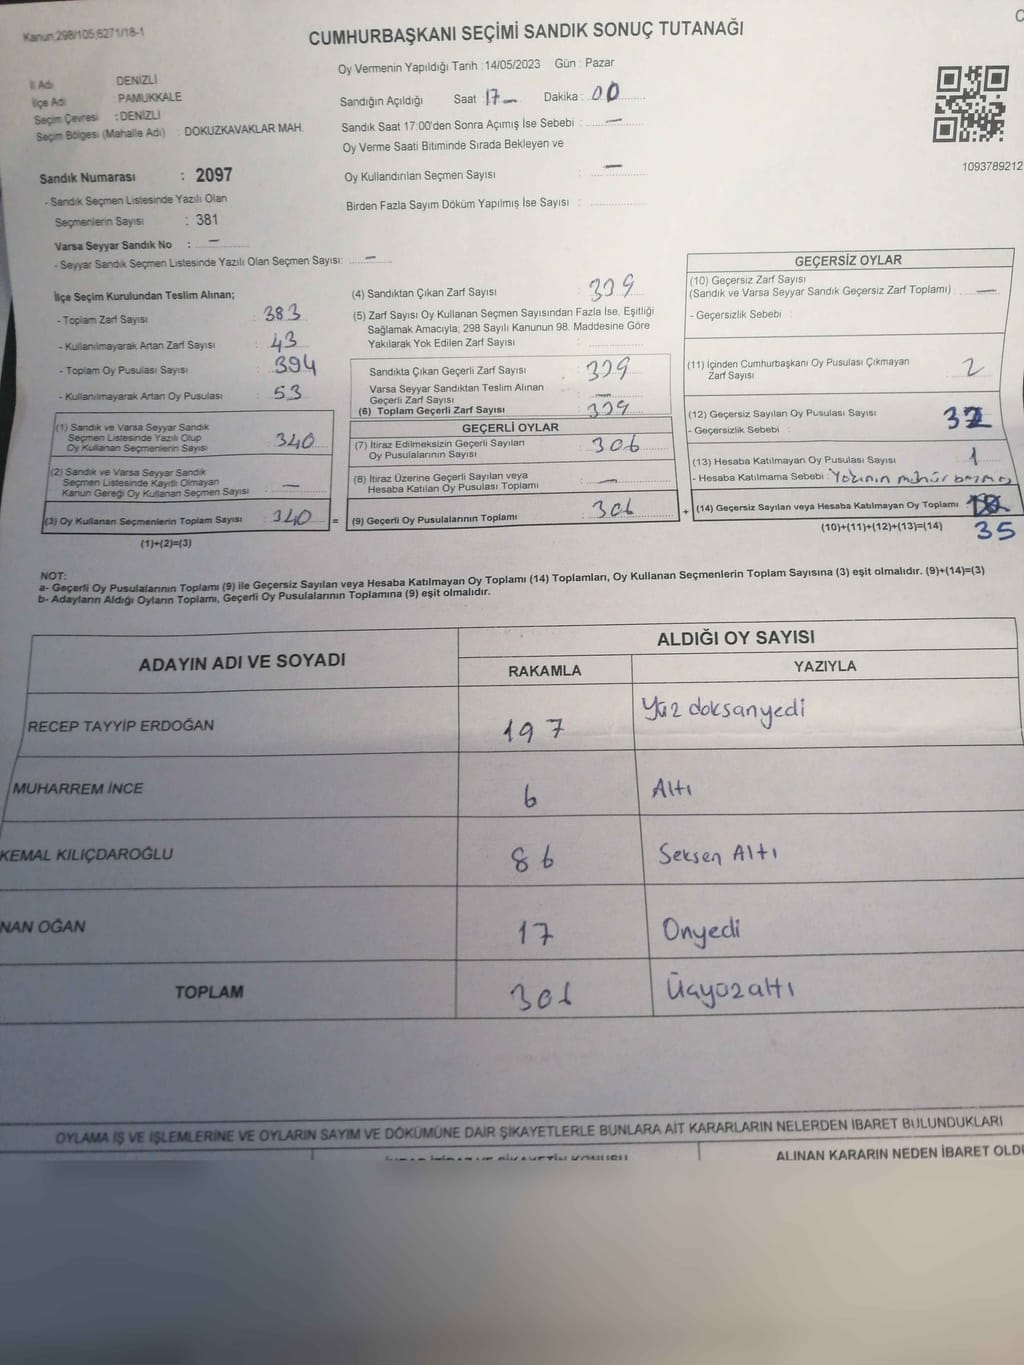 Kanun;298/105;6271/18-1
CUMHURBAŞKANI SEÇİMİ SANDIK SONUÇ TUTANAĞI
Oy Vermenin Yapıldığı Tarih :14/05/2023 Gün : Pazar
İl Adı DENİZLİ
İlçe Adı PAMUKKALE
Seçim Çevresi : DENİZLİ
Seçim Bölgesi (Mahalle Adı) : DOKUZKAVAKLAR MAH.
Sandığın Açıldığı Saat 17 - Dakika : 00
Sandık Saat 17:00'den Sonra Açımış İse Sebebi : -
Oy Verme Saati Bitiminde Sırada Bekleyen ve
Oy Kullandırılan Seçmen Sayısı : -
Birden Fazla Sayım Döküm Yapılmış İse Sayısı :
1093789212
Sandık Numarası : 2097
- Sandık Seçmen Listesinde Yazılı Olan
Seçmenlerin Sayısı : 381
Varsa Seyyar Sandık No : -
- Seyyar Sandık Seçmen Listesinde Yazılı Olan Seçmen Sayısı: -
İlçe Seçim Kurulundan Teslim Alınan;
- Toplam Zarf Sayısı : 383
- Kullanılmayarak Artan Zarf Sayısı : 43
- Toplam Oy Pusulası Sayısı : 394
- Kullanılmayarak Artan Oy Pusulası : 53
(1) Sandık ve Varsa Seyyar Sandık
Seçmen Listesinde Yazılı Olup
Oy Kullanan Seçmenlerin Sayısı : 340
(2) Sandık ve Varsa Seyyar Sandık
Seçmen Listesinde Kayıtlı Olmayan
Kanun Gereği Oy Kullanan Seçmen Sayısı : -
(3) Oy Kullanan Seçmenlerin Toplam Sayısı : 340
(1)+(2)=(3)
(4) Sandıktan Çıkan Zarf Sayısı : 339
(5) Zarf Sayısı Oy Kullanan Seçmen Sayısından Fazla İse, Eşitliği
Sağlamak Amacıyla; 298 Sayılı Kanunun 98. Maddesine Göre
Yakılarak Yok Edilen Zarf Sayısı :
Sandıkta Çıkan Geçerli Zarf Sayısı : 339
Varsa Seyyar Sandıktan Teslim Alınan
Geçerli Zarf Sayısı : -
(6) Toplam Geçerli Zarf Sayısı : 339
GEÇERLİ OYLAR
(7) İtiraz Edilmeksizin Geçerli Sayılan
Oy Pusulalarının Sayısı : 306
(8) İtiraz Üzerine Geçerli Sayılan veya
Hesaba Katılan Oy Pusulası Toplamı : -
= (9) Geçerli Oy Pusulalarının Toplamı : 306
GEÇERSİZ OYLAR
(10) Geçersiz Zarf Sayısı
(Sandık ve Varsa Seyyar Sandık Geçersiz Zarf Toplamı) : -
- Geçersizlik Sebebi :
(11) İçinden Cumhurbaşkanı Oy Pusulası Çıkmayan
Zarf Sayısı : 2
(12) Geçersiz Sayılan Oy Pusulası Sayısı : 32
- Geçersizlik Sebebi :
(13) Hesaba Katılmayan Oy Pusulası Sayısı : 1
- Hesaba Katılmama Sebebi : Yazının mühür basması
+ (14) Geçersiz Sayılan veya Hesaba Katılmayan Oy Toplamı
(10)+(11)+(12)+(13)=(14) 35
NOT:
a- Geçerli Oy Pusulalarının Toplamı (9) ile Geçersiz Sayılan veya Hesaba Katılmayan Oy Toplamı (14) Toplamları, Oy Kullanan Seçmenlerin Toplam Sayısına (3) eşit olmalıdır. (9)+(14)=(3)
b- Adayların Aldığı Oyların Toplamı, Geçerli Oy Pusulalarının Toplamına (9) eşit olmalıdır.
ADAYIN ADI VE SOYADI
ALDIĞI OY SAYISI
RAKAMLA YAZIYLA
RECEP TAYYİP ERDOĞAN 197 Yüz doksanyedi
MUHARREM İNCE 6 Altı
KEMAL KILIÇDAROĞLU 86 Seksen Altı
NAN OĞAN 17 Onyedi
TOPLAM 306 Üçyüzaltı
OYLAMA İŞ VE İŞLEMLERİNE VE OYLARIN SAYIM VE DÖKÜMÜNE DAİR ŞİKAYETLERLE BUNLARA AİT KARARLARIN NELERDEN İBARET BULUNDUKLARI
ALINAN KARARIN NEDEN İBARET OLDU